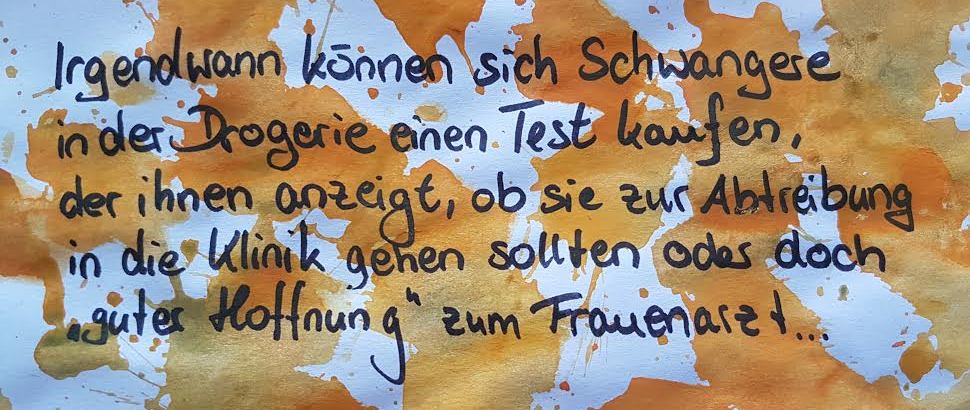 Irgendwann können sich Schwangere
in der Drogerie einen Test kaufen,
der ihnen anzeigt, ob sie zur Abtreibung
in die Klinik gehen sollten oder doch
„guter Hoffnung" zum Frauenarzt...